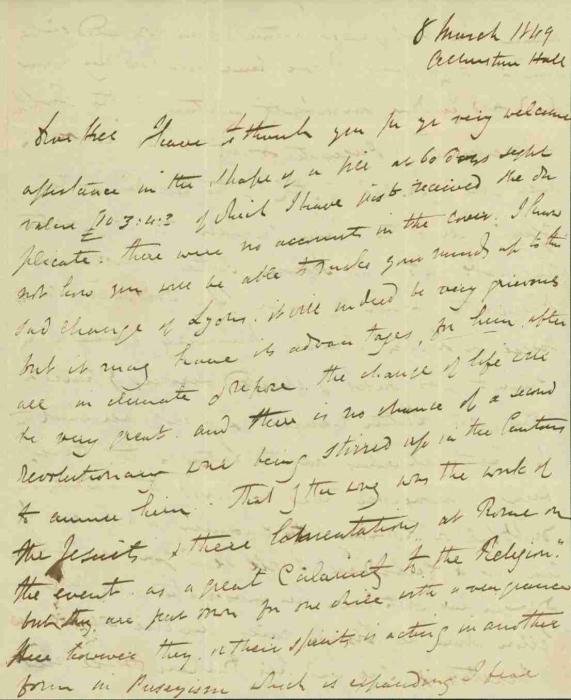 8 March 1849
Hall
I have to thank you for yr very welcome
assistance in the shape of a bill at 60 days sight
value £ 3:4:2 of which I have just received the du
plicate. there were no accounts in the cover. I know
not how you will be able to make your minds up to this
sad change of Lyons. it will indeed be very grievous
but it may have its advantages, for him, after
all in climate & repose. the change of life will
be very great. and there is no chance of a second
revolutionary war being stirred up in the Cantons
to annoy him. That by the way was the work of
the Jesuits & there Lamentations at Rome on
the event. as a great Calamity to the Religion."
but they are put down for once with a vengeance
here however they or their spirits is acting in another
form in Puseyism which is expanding I